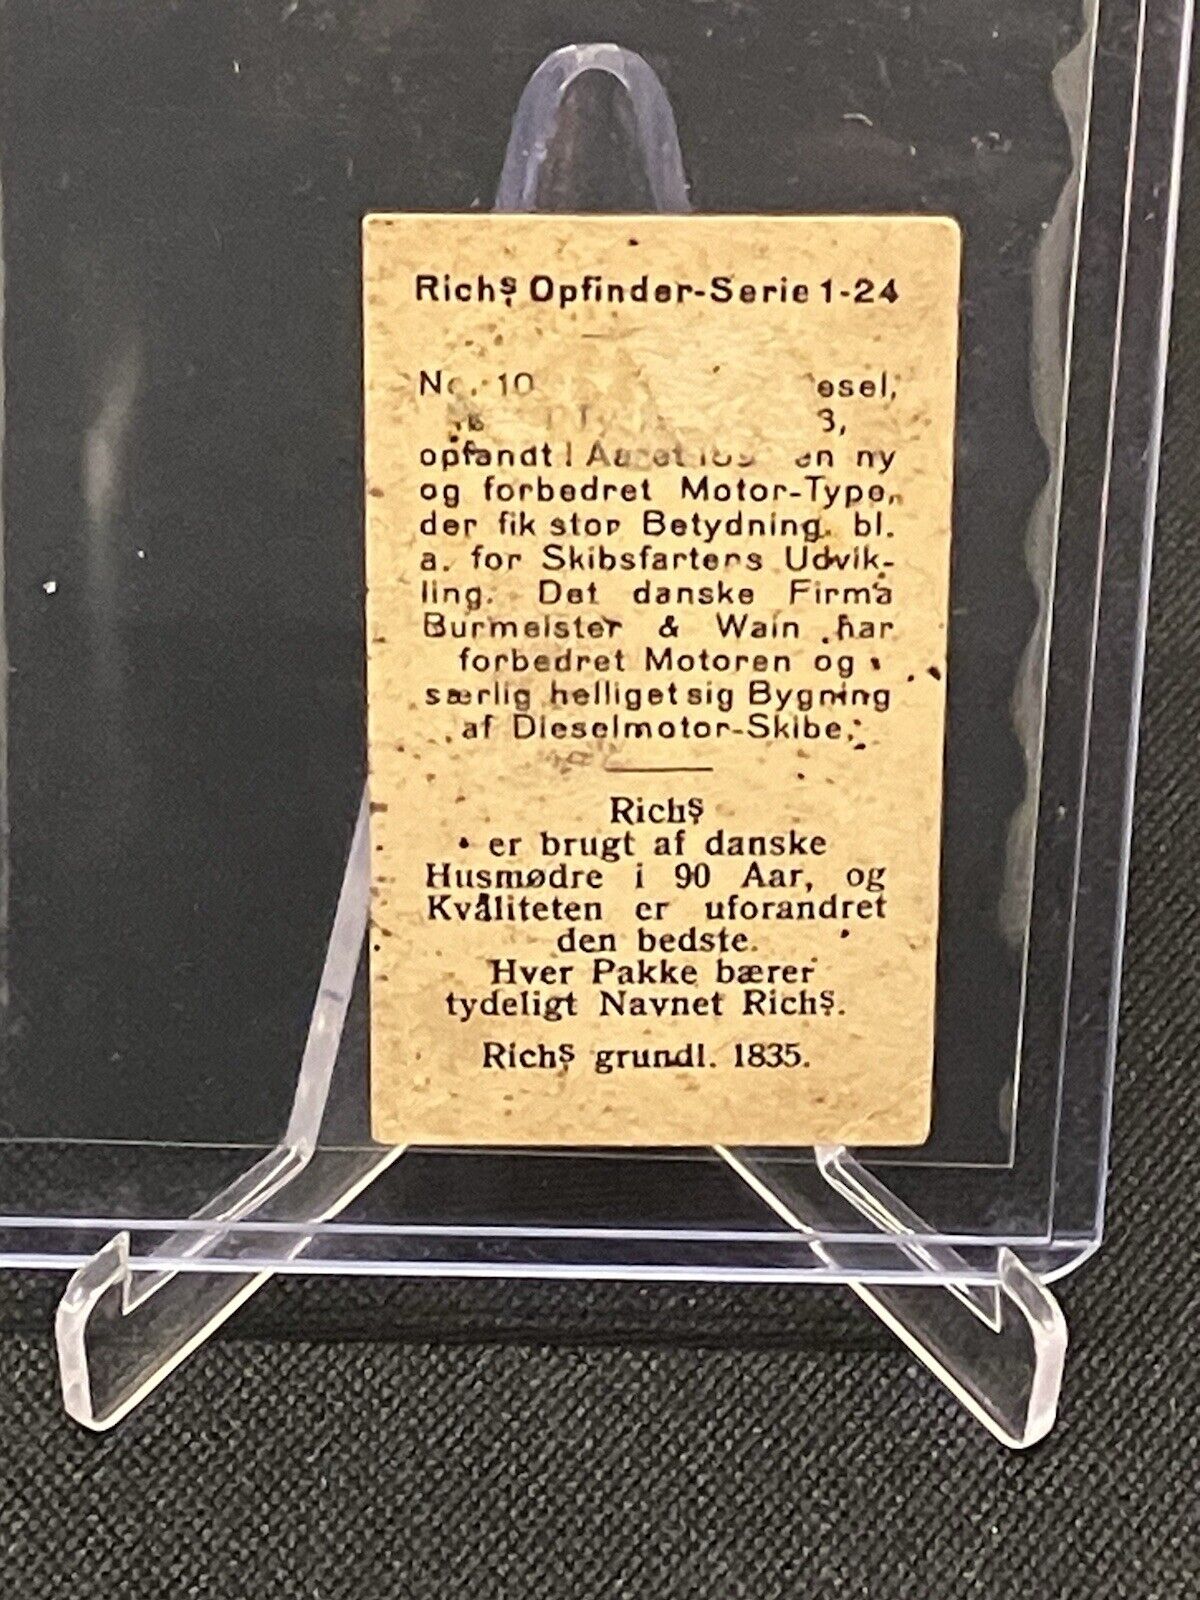 Richs Opfinder-Serie 1-24
No. 10
opfandt i Aaret en ny
og forbedret Motor-Type,
der fik stor Betydning, bl.
a. for Skibsfartens Udvik-
ling. Det danske Firma
Burmeister & Wain har
forbedret Motoren og
særlig helliget sig Bygning
af Dieselmotor-Skibe.
Richs
er brugt af danske
Husmødre i 90 Aar, og
Kvaliteten er uforandret
den bedste.
Hver Pakke bærer
tydeligt Navnet Richs.
Richs grundl. 1835.